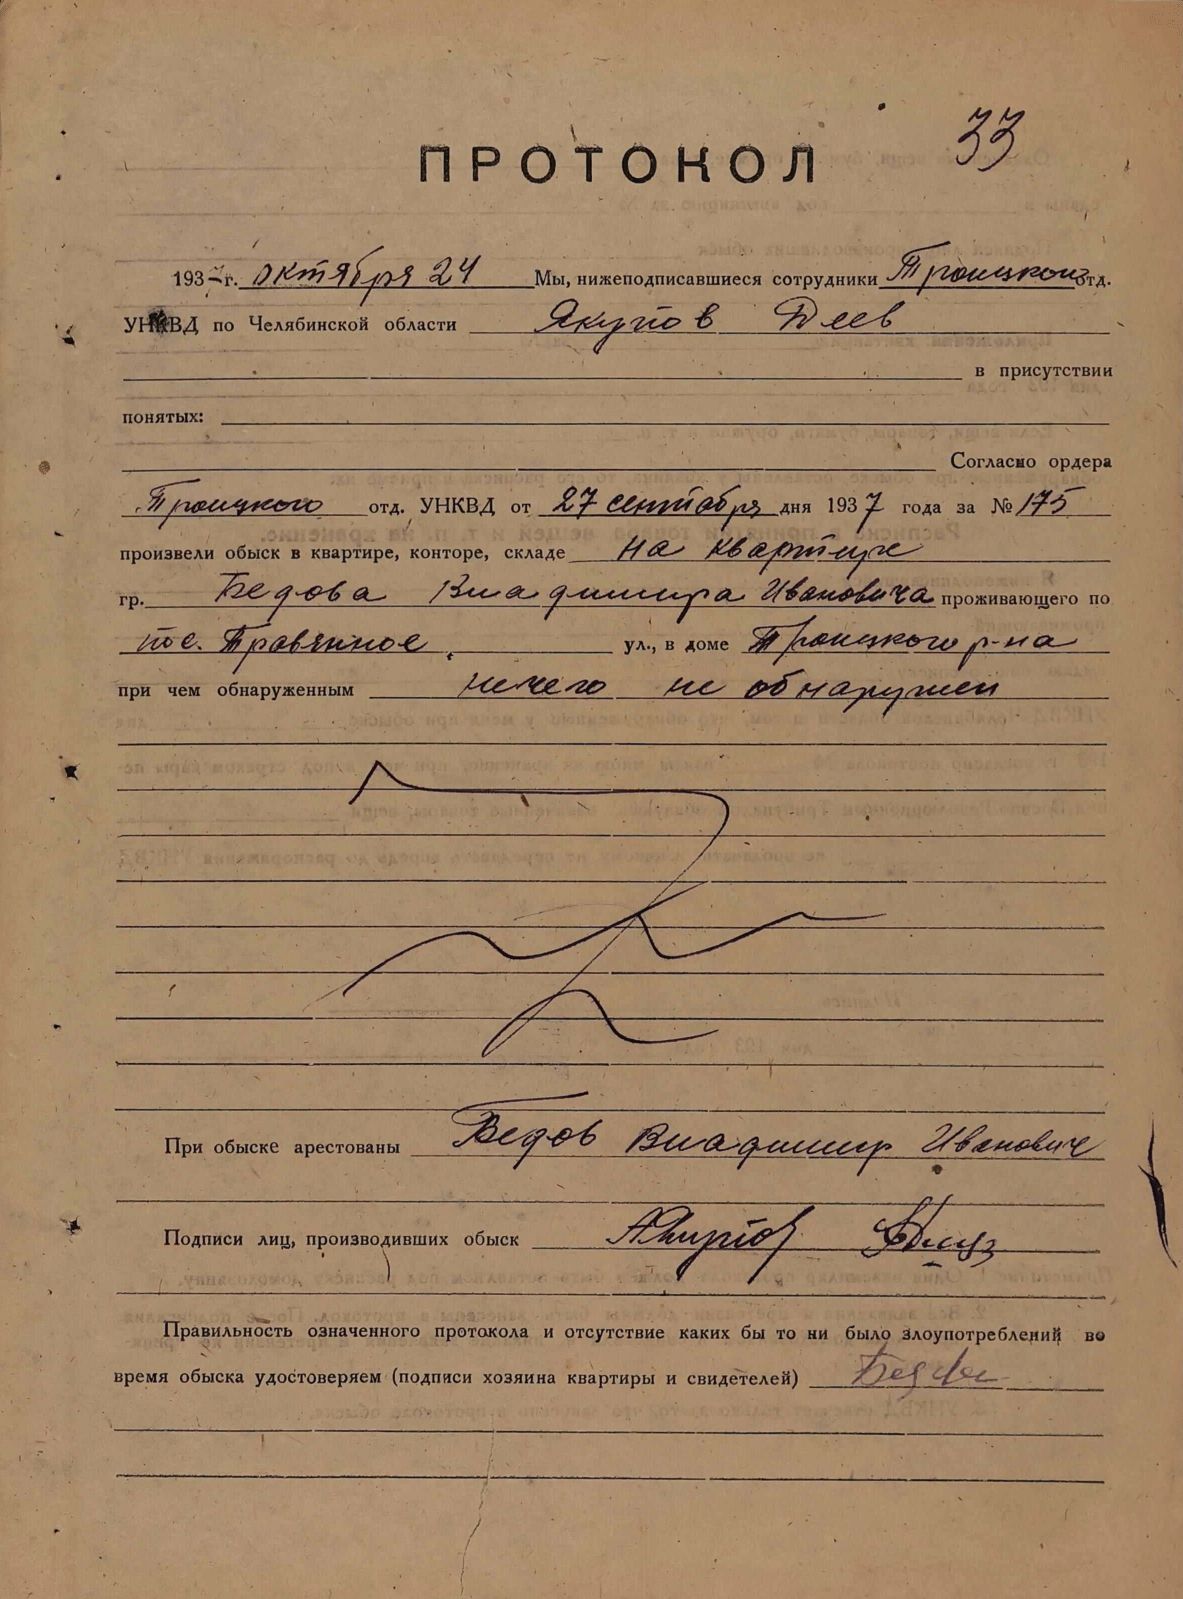 33
ПРОТОКОЛ
1937 г. октября 24 Мы, нижеподписавшиеся сотрудники Троицкого отд.
УНКВД по Челябинской области Якупов Деев
в присутствии
понятых:
Согласно ордера
Троицкого отд. УНКВД от 27 сентября дня 1937 года за № 175
произвели обыск в квартире, конторе, складе на квартире
гр. Бедова Владимира Ивановича проживающего по
пос. Травянное ул., в доме Троицкого р-на
при чем обнаруженным нечего не обнаружен
При обыске арестованы Бедов Владимир Иванович
Подписи лиц, производивших обыск АЯкупов
Правильность означенного протокола и отсутствие каких бы то ни было злоупотреблений во
время обыска удостоверяем (подписи хозяина квартиры и свидетелей) Бедов